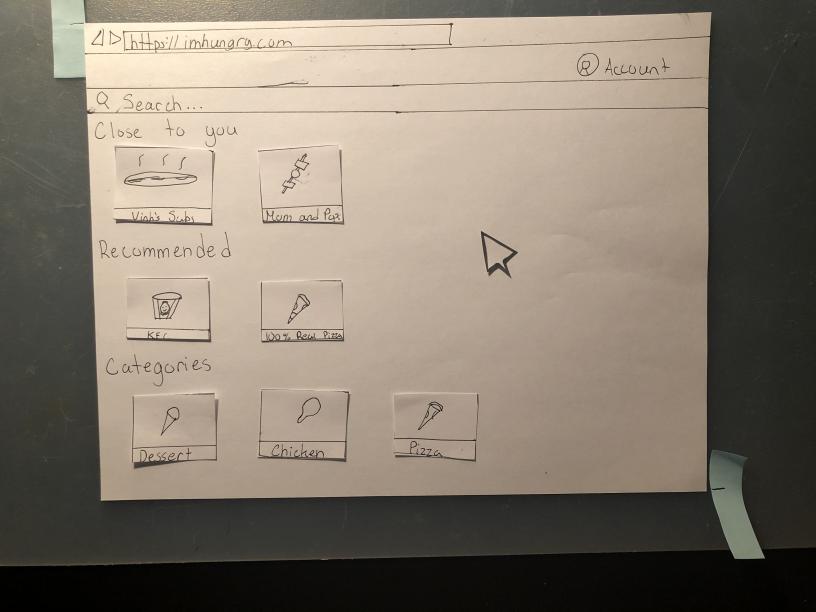 https://imhungry.com
R Account
Search...
Close to you
Vinh's Subs
Mom and Pops
Recommended
KFC
100% Real Pizza
Categories
Dessert
Chicken
Pizza